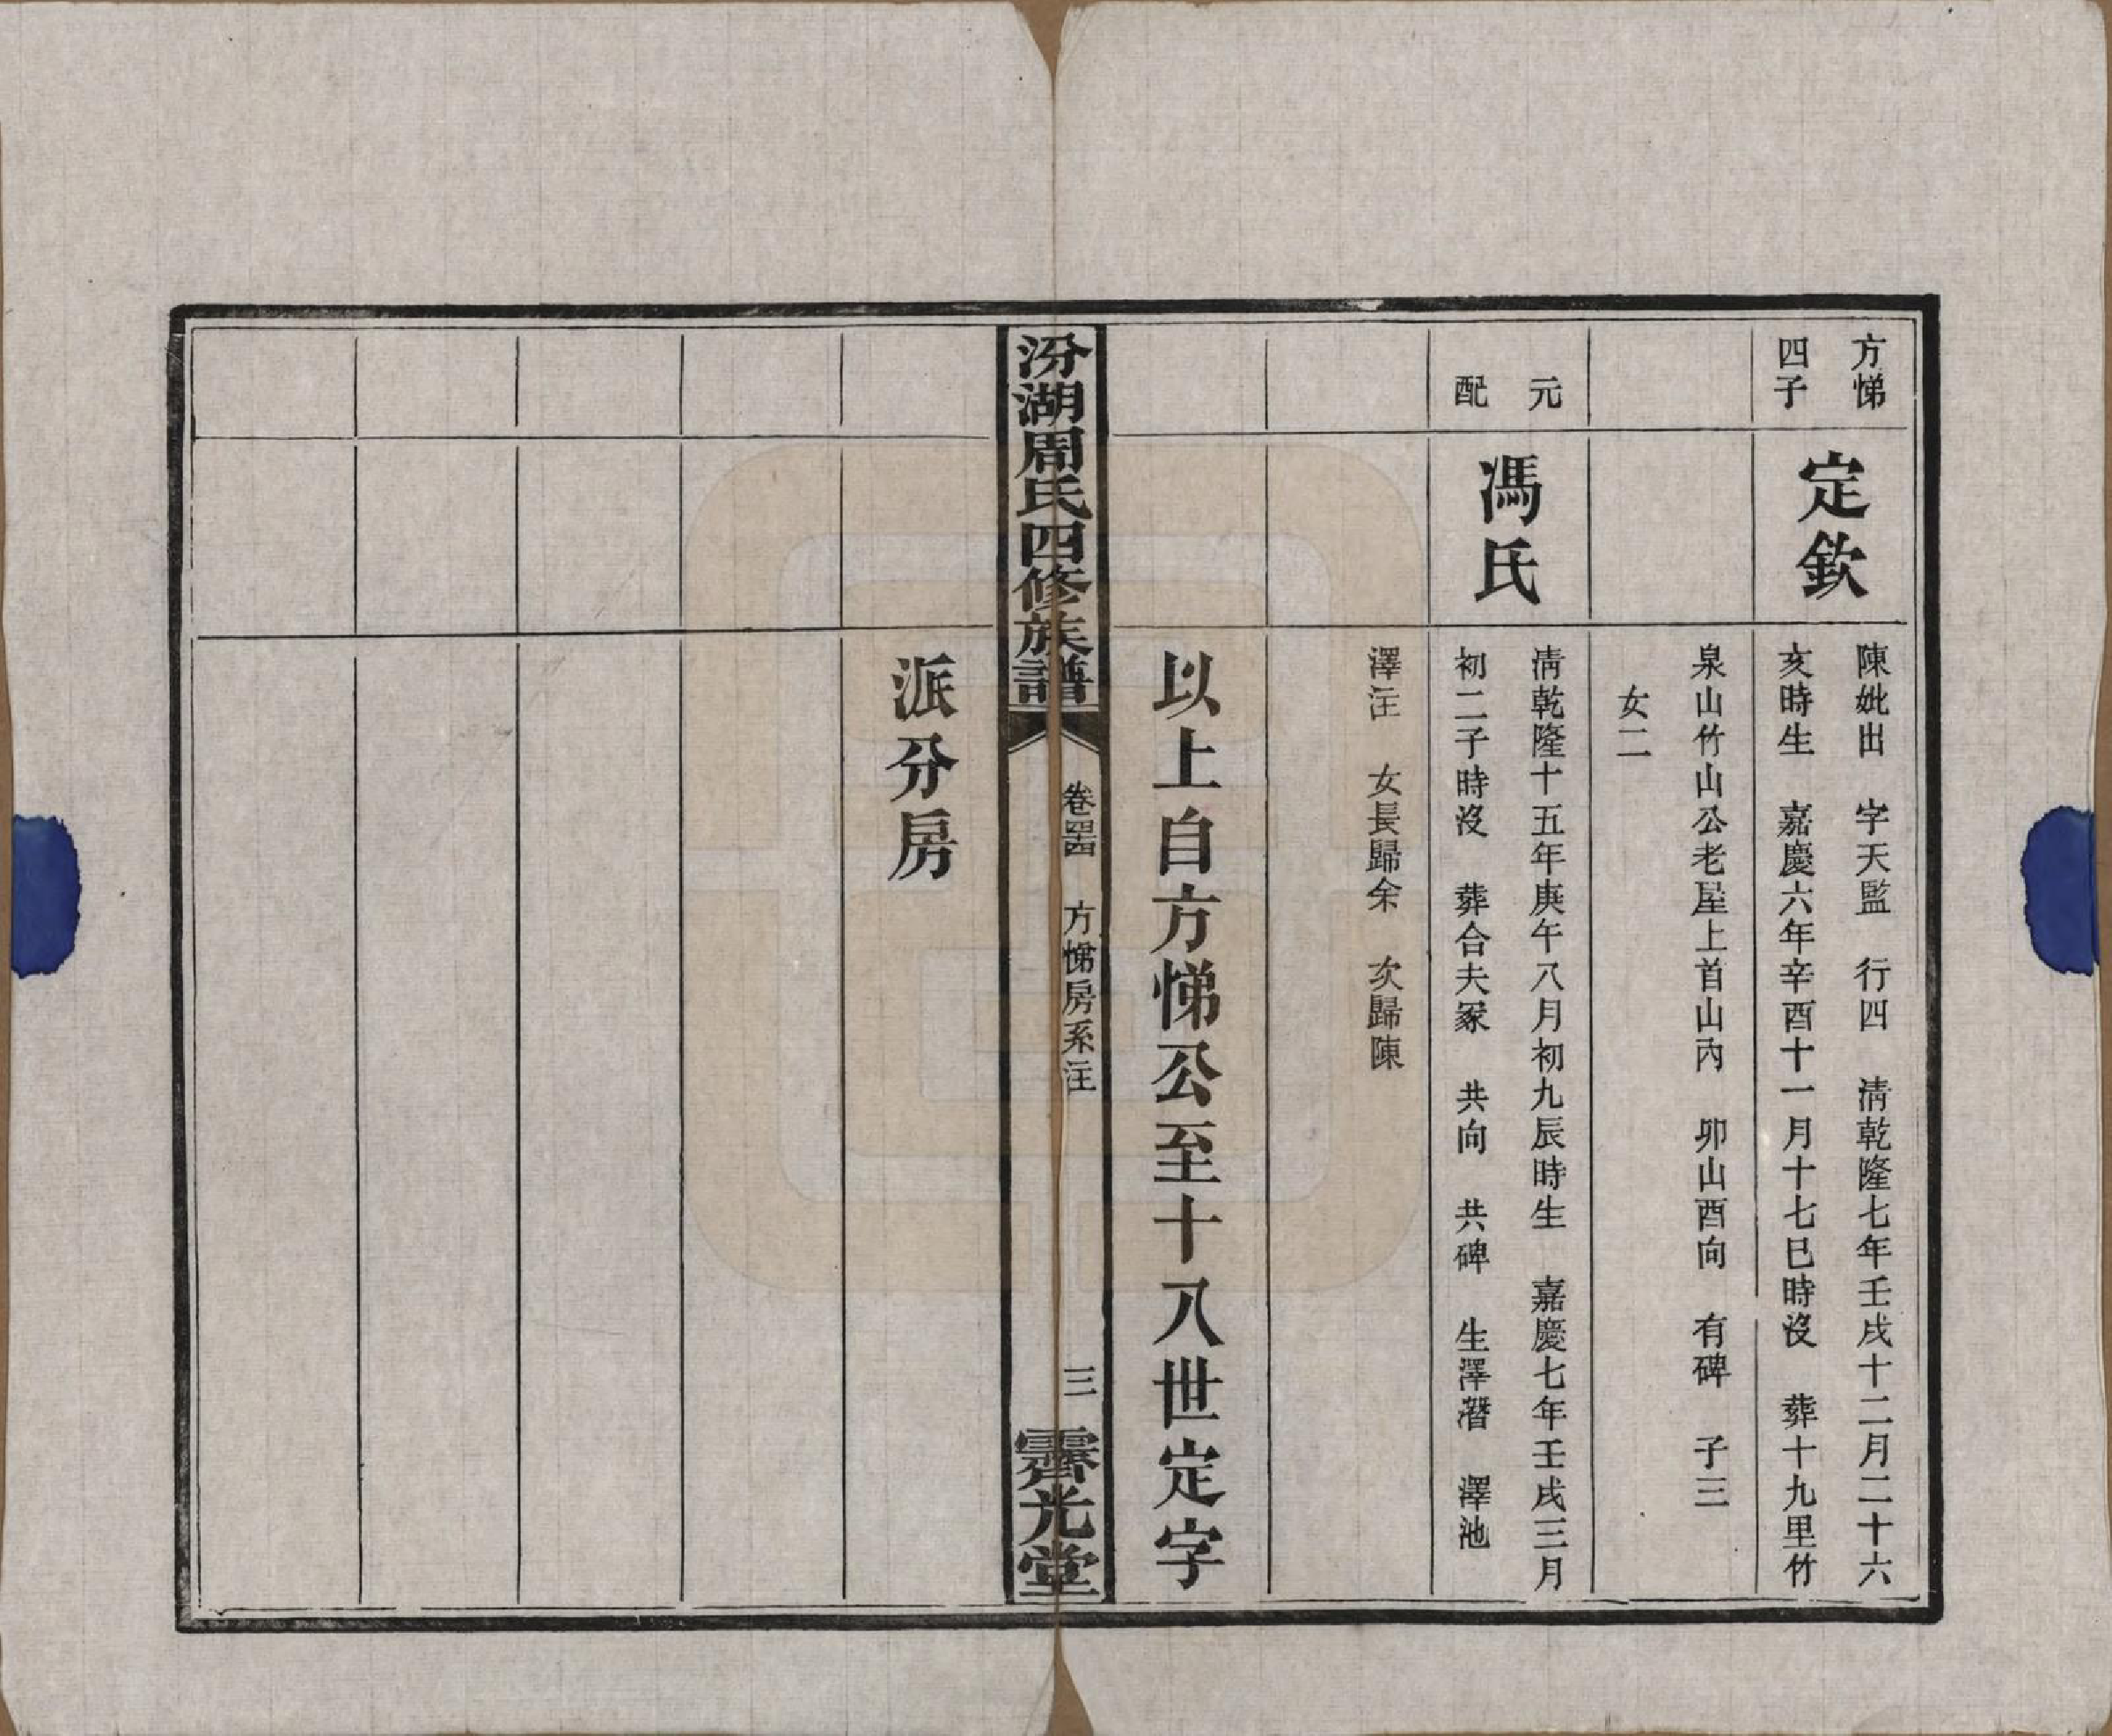 方悌
四子
定欽
陳妣出　字天監　行四　淸乾隆七年壬戌十二月二十六
亥時生　嘉慶六年辛酉十一月十七巳時沒　葬十九里竹
泉山竹山公老屋上首山內　卯山酉向　有碑　子三
女二
元
配
馮氏
淸乾隆十五年庚午八月初九辰時生　嘉慶七年壬戌三月
初二子時沒　葬合夫冢　共向　共碑　生澤潛　澤池
澤汪　女長歸余　次歸陳
以上自方悌公至十八世定字
汾湖周氏四修族譜
卷四十四　方悌房系注
三
霽光堂
派分房